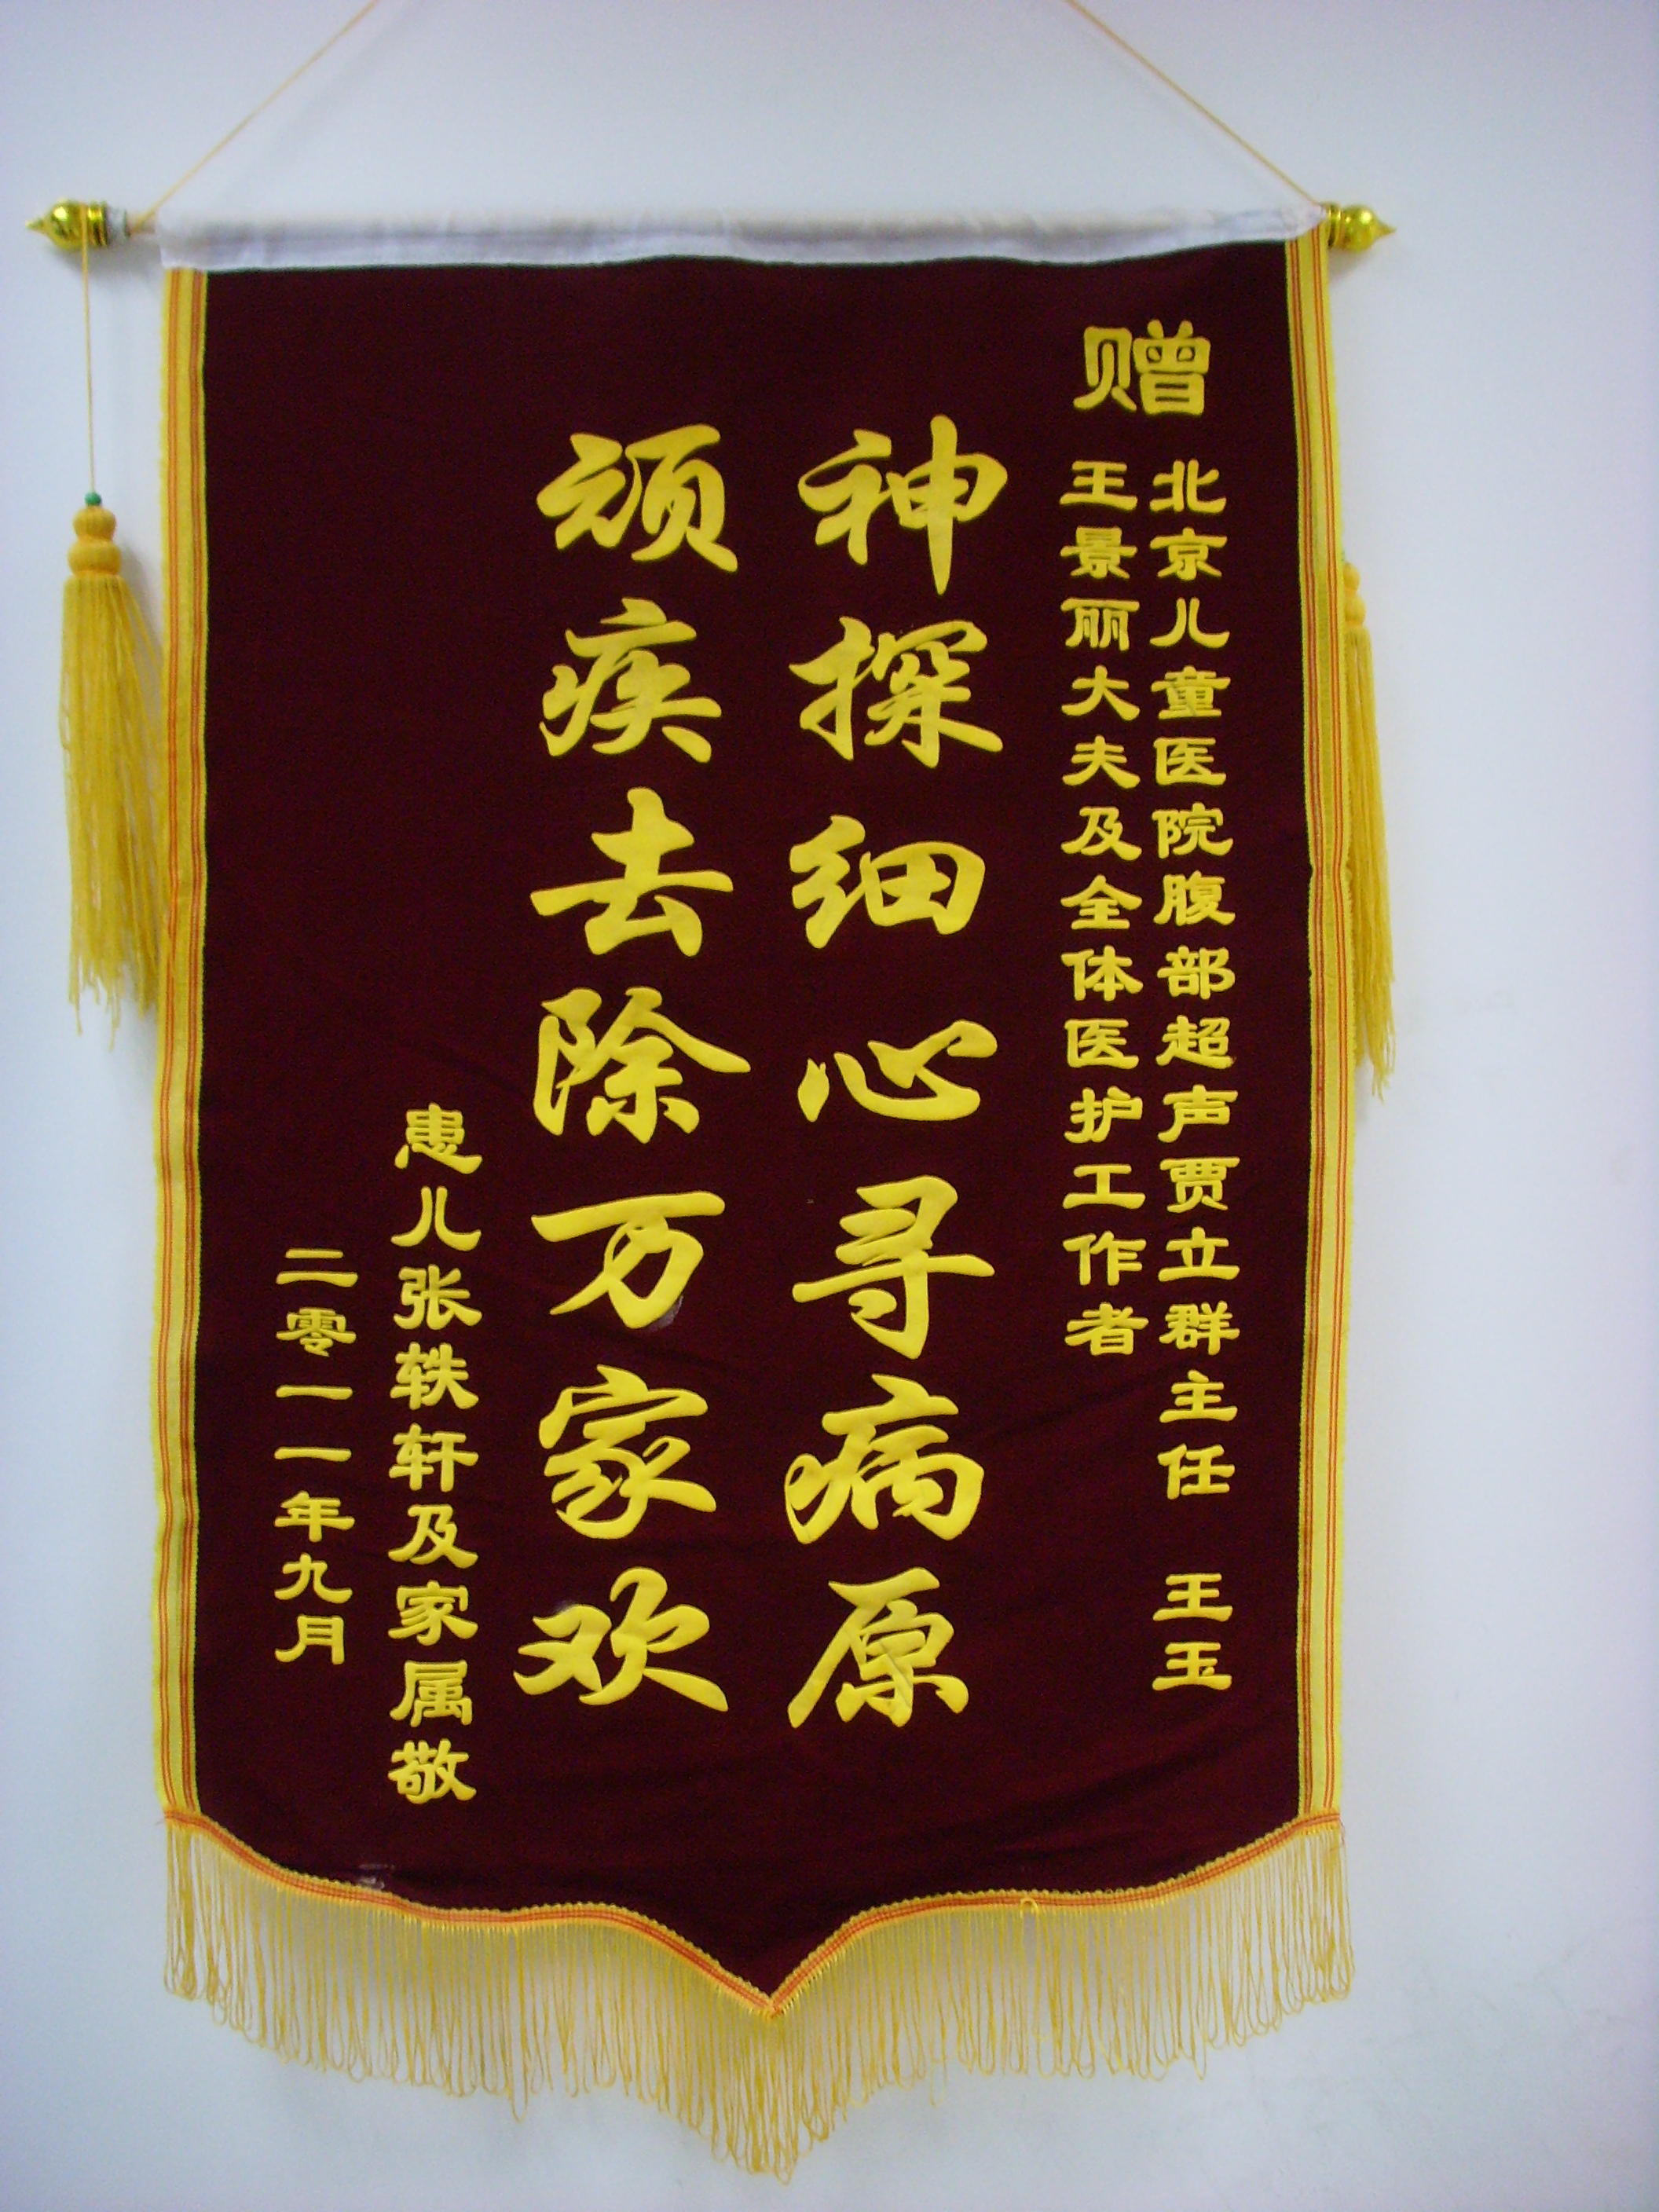 赠
北京儿童医院腹部超声贾立群主任 王玉
王景丽大夫及全体医护工作者
神探细心寻病原
顽疾去除万家欢
患儿张轶轩及家属敬
二零一一年九月